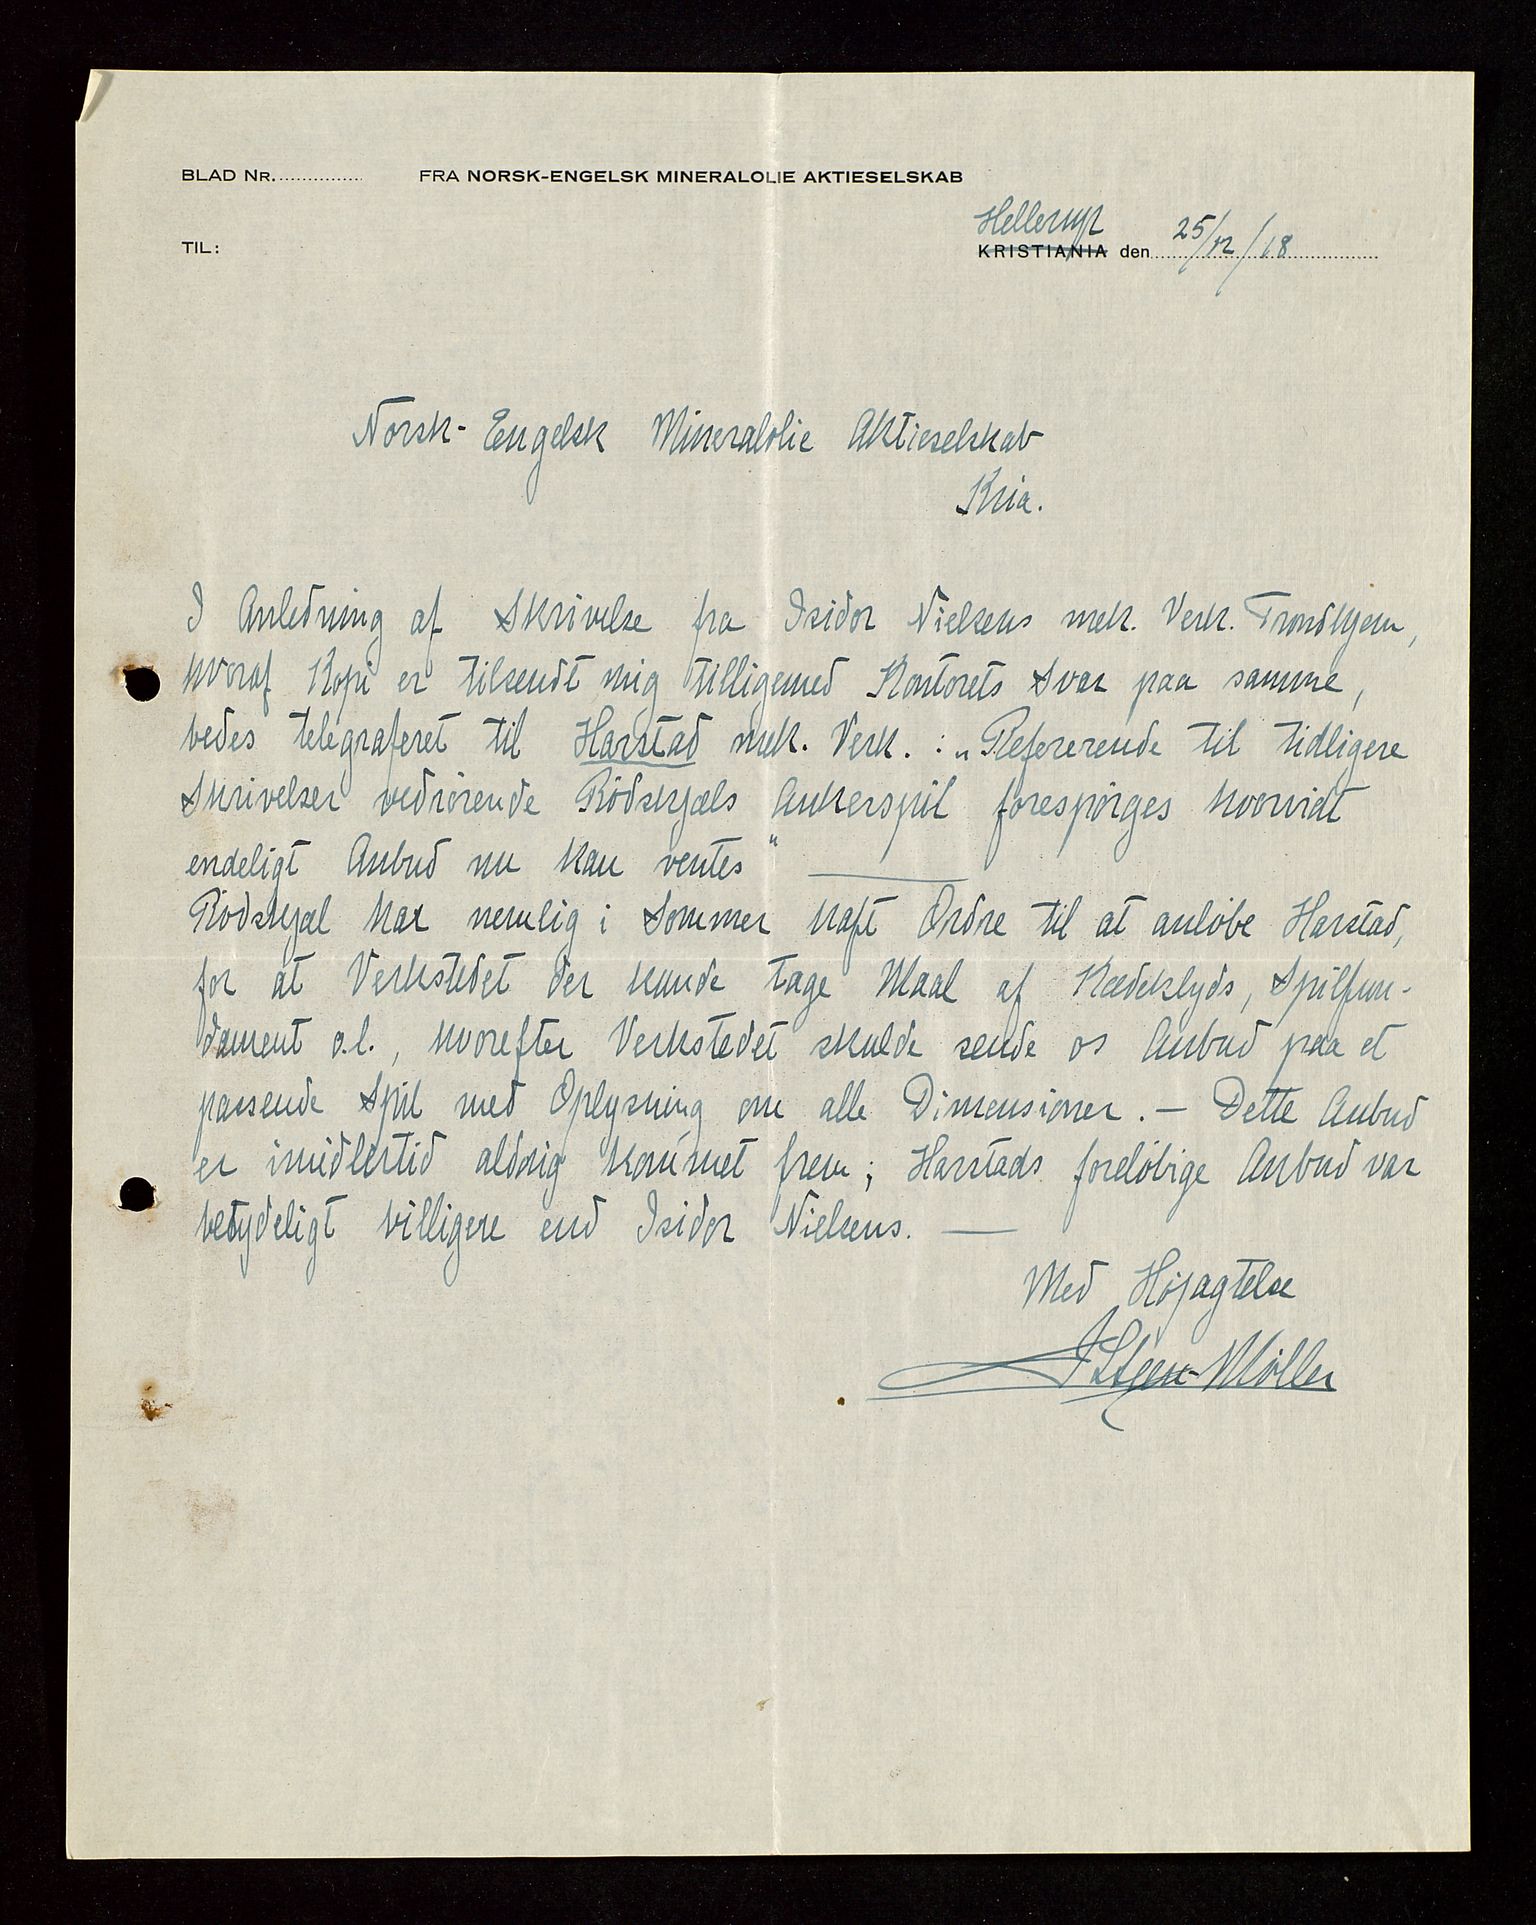 BLAD NR. FRA NORSK-ENGELSK MINERALOLIE AKTIESELSKAB
Hellerup
TIL: KRISTIANIA den 25/12/18
Norsk-Engelsk Mineralolie Aktieselskab
Kria.
I Anledning af Skrivelse fra Isidor Nielsens mek. Verk. Trondhjem,
hvoraf Kopi er tilsendt mig tilligemed Kontorets Svar paa samme,
bedes telegraferet til Harstad mek. Verk. : „Refererende til tidligere
Skrivelser vedrörende Rödskjæls Ankerspil forespörges hvorvidt
endeligt Anbud nu kan ventes"
Rödskjæl har nemlig i Sommer haft Ordre til at anlöbe Harstad,
for at Verkstedet der kunde tage Maal af Kædeklyds, Spilfun-
dament o.l., hvorefter Verkstedet skulde sende os Anbud paa et
passende Spil med Oplysning om alle Dimensioner. — Dette Anbud
er imidlertid aldrig kommet frem; Harstads foreløbige Anbud var
betydeligt billigere end Isidor Nielsens. —
Med Højagtelse
Steen-Møller